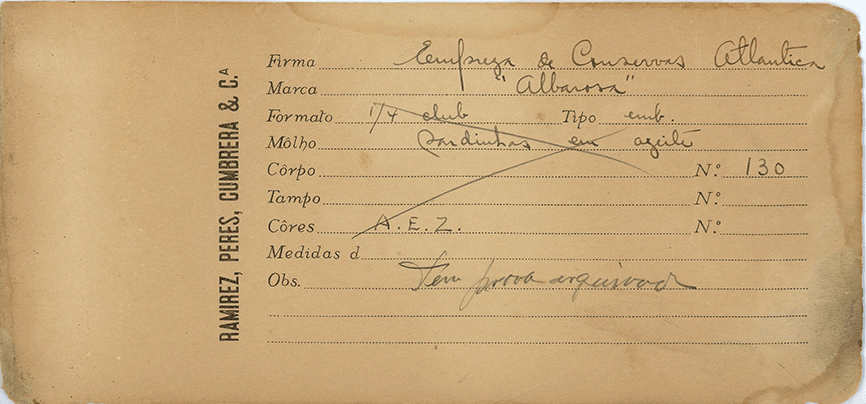 RAMIREZ, PERES, CUMBRERA & C.ᴬ
Firma Empreza de Conservas Atlantica
Marca "Albarosa"
Formato 1/4 club Tipo emb.
Môlho sardinhas em azeite
Côrpo N.º 130
Tampo N.º
Côres A. E. Z. N.º
Medidas d
Obs. Tem prova arquivada